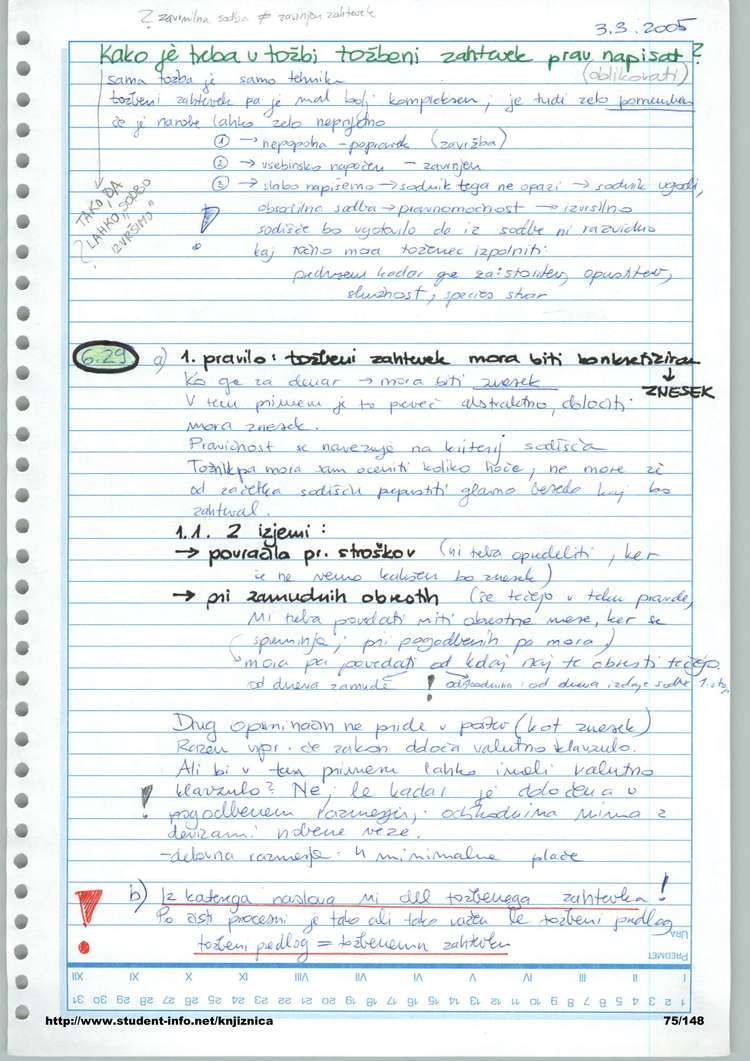 ? zavrnilna sodba ≠ zavrnjen zahtevek
3.3.2005
Kako je treba v tožbi tožbeni zahtevek prav napisat?
(oblikovati)
sama tožba je samo tehnika
tožbeni zahtevek pa je mal bolj kompleksen, je tudi zelo pomemben
če je narobe lahko zelo neprijetno
① → nepopolna - popravek (zavržba)
② → vsebinsko napačen - zavrnjen
③ → slabo napišemo → sodnik tega ne opazi → sodnik ugodi,
obsodilna sodba → pravnomočnost → izvršilno
sodišče bo ugotovilo da iz sodbe ni razvidno
kaj točno mora toženec izpolniti
predvsem kadar gre za: storitev, opustitev,
služnost, species stvar
TAKO, DA
LAHKO "SODBO
IZVRŠIMO"
6.29. a) 1. pravilo: tožbeni zahtevek mora biti konkretiziran
↓
ZNESEK
Ko gre za denar → mora biti znesek
V tem primeru je to preveč abstraktno, določiti
mora znesek.
Pravičnost se navezuje na kriterij sodišča
Tožnik pa mora sam oceniti koliko hoče, ne more že
od začetka sodišču prepustiti glavno besedo kaj bo
zahteval.
1.1. 2 izjemi:
→ povračila pr. stroškov (ni treba opredeliti, ker
še ne vemo kakšen bo znesek)
→ pri zamudnih obrestih (če tečejo v teku pravde,
ni treba povedati niti obrestne mere, ker se
spreminja; pri pogodbenih pa mora)
mora pa povedati od kdaj naj te obresti tečejo
od dneva zamude ! odškodnina: od dneva izdaje sodbe 1. stop
Drug oprimin ne pride v poštev (kot znesek)
Razen npr. če zakon določa valutno klavzulo.
Ali bi v tem primeru lahko imeli valutno
klavzulo? Ne, le kadar je določena v
pogodbenem razmerju; odškodnina nima z
devizami nobene veze.
- delovna razmerja: 4 minimalne plače
b) Iz katerega naslova ni del tožbenega zahtevka!
Po čisti procesni je tako ali tako važen le tožbeni predlog
tožbeni predlog = tožbenemu zahtevku
URA
PREDMET
I II III IV V VI VII VIII IX X XI XII
1 2 3 4 5 6 7 8 9 10 11 12 13 14 15 16 17 18 19 20 21 22 23 24 25 26 27 28 29 30 31
http://www.student-info.net/knjiznica
75/148